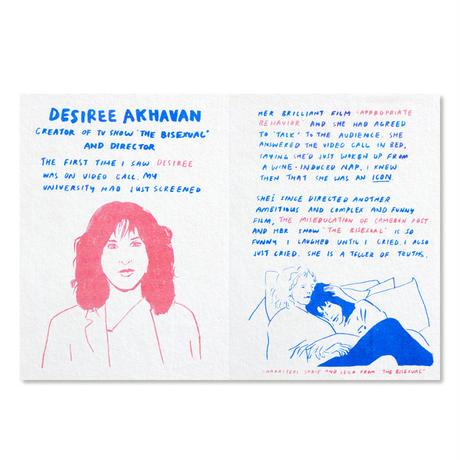 DESIREE AKHAVAN
CREATOR OF TV SHOW "THE BISEXUAL"
AND DIRECTOR
THE FIRST TIME I SAW DESIREE
WAS ON VIDEO CALL. MY
UNIVERSITY HAD JUST SCREENED
HER BRILLIANT FILM 'APPROPRIATE
BEHAVIOR' AND SHE HAD AGREED
TO 'TALK' TO THE AUDIENCE. SHE
ANSWERED THE VIDEO CALL IN BED,
SAYING SHE'D JUST WOKEN UP FROM
A WINE-INDUCED NAP. I KNEW
THEN THAT SHE WAS AN ICON.
SHE'S SINCE DIRECTED ANOTHER
AMBITIOUS AND COMPLEX AND FUNNY
FILM, THE MISEDUCATION OF CAMERON POST
AND HER SHOW 'THE BISEXUAL' IS SO
FUNNY I LAUGHED UNTIL I CRIED. I ALSO
JUST CRIED. SHE IS A TELLER OF TRUTHS.
CHARACTERS SADIE AND LEILA FROM 'THE BISEXUAL'